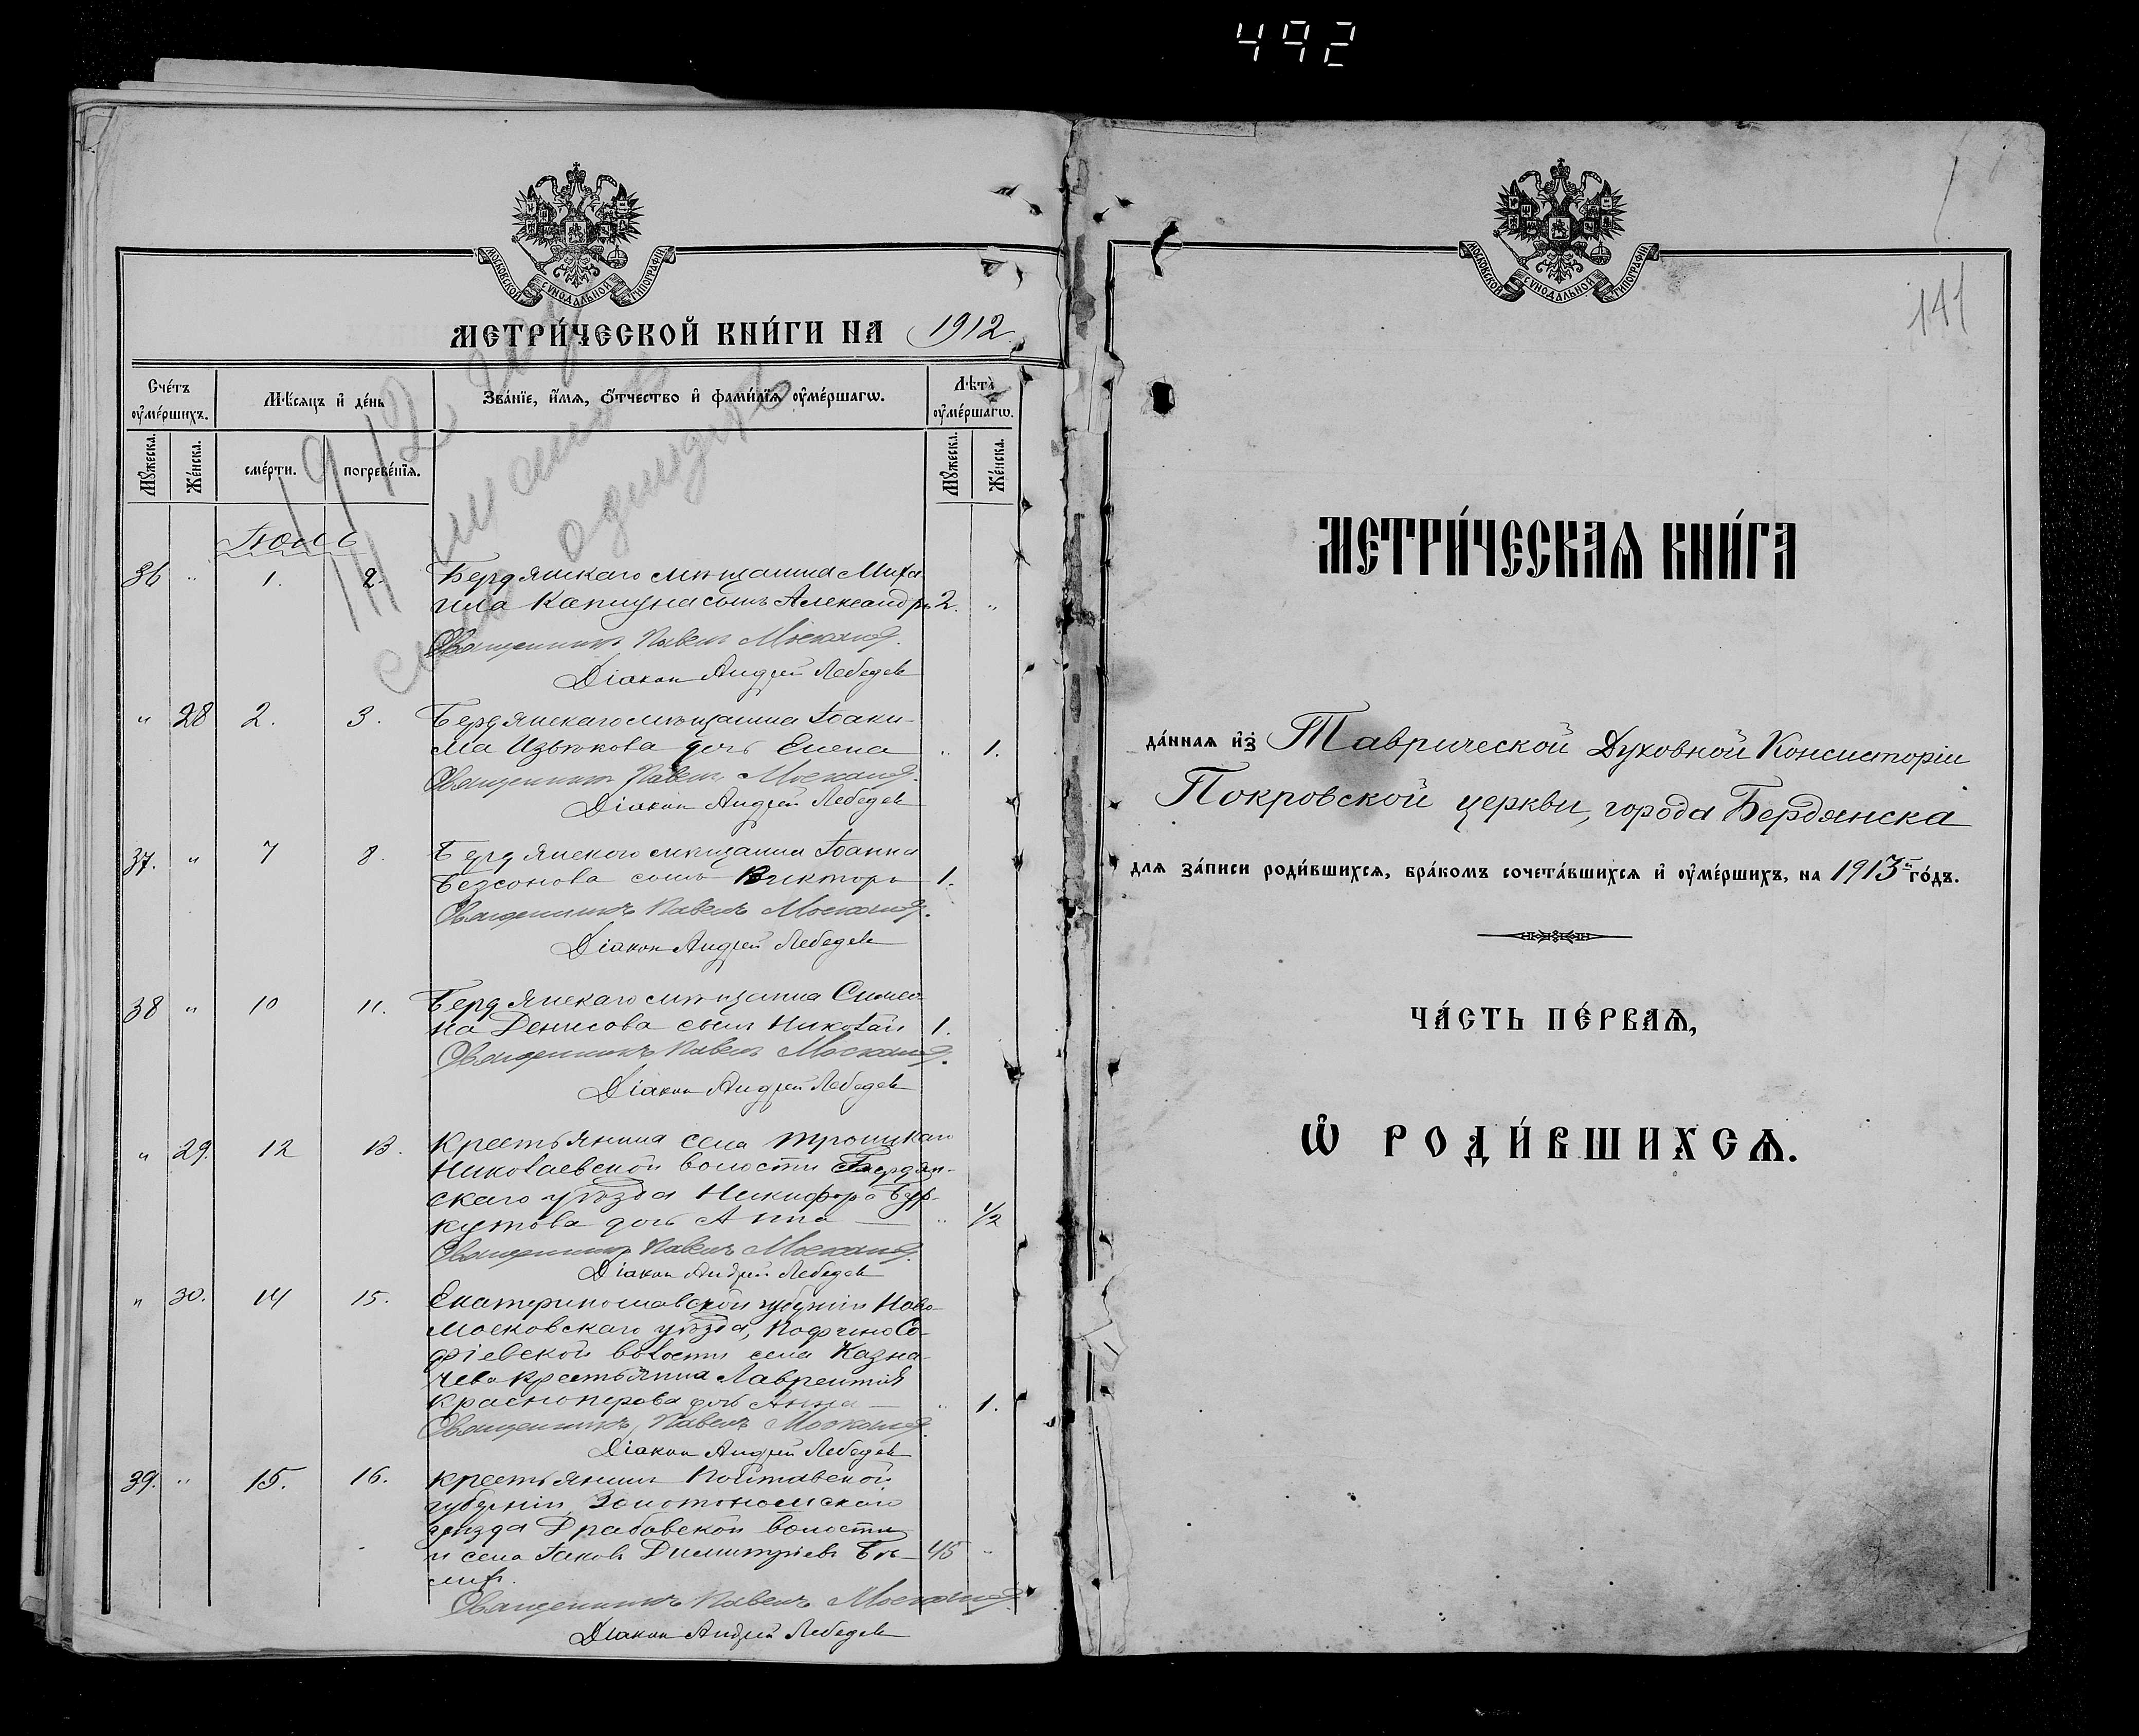 492
МОСКОВСКОЙ СУНОДАЛЬНОЙ ТИПОГРАФІИ
МЕТРИ́ЧЕСКОЙ КНИ́ГИ НА 1912
Сче́тъ оуме́ршихъ.
Мѣсяцъ и де́нь
Зва́нїе, и́мя, о́тчество и фами́лїя оуме́ршагѡ.
Лѣта̀ оуме́ршагѡ.
Мꙋжеска.
Же́нска.
сме́рти.
погребе́нїя.
Мꙋжеска.
Же́нска.
1912 году
Іюль
36 " 1. 2. Бердянскаго мѣщанина Миха
ила Капцуна сынъ Александръ 2. "
Священникъ Павелъ
Діакон Андрей Лебедев
" 28 2. 3. Бердянскаго мѣщанина Іоаки-
ма Извѣкова дочь Елена " 1.
Священникъ Павелъ
Діакон Андрей Лебедев
37. " 7 8. Бердянскаго мѣщанина Іоанна
Безсонова сынъ Викторъ 1.
Священникъ Павелъ
Діакон Андрей Лебедев
38 " 10 11. Бердянскаго мѣщанина Симео-
на Денисова сынъ Николай 1.
Священникъ Павелъ
Діакон Андрей Лебедев
" 29. 12 13. Крестьянина села Троицкаго
Николаевской волости Бердян-
скаго уѣзда Никифора Бур-
кутова дочь Анна — " 1/2
Священникъ Павелъ
Діакон Андрей Лебедев
" 30. 14 15. Екатеринославской губерніи Ново-
московскаго уѣзда, Со-
фіевской волости села Казна-
чева крестьянина Лаврентія
Красноперова дочь Анна — " 1.
Священникъ Павелъ
Діакон Андрей Лебедев
39. " 15. 16. Крестьянинъ Полтавской
губерніи Золотоношскаго
уѣзда Драбовской волости
и села Іаковъ Димитріевъ 45 "
Священникъ Павелъ
Діакон Андрей Лебедев
МОСКОВСКОЙ СУНОДАЛЬНОЙ ТИПОГРАФІИ
141
МЕТРИ́ЧЕСКАѦ КНИ́ГА
да́нная из̾ Таврической Духовной Консисторіи
Покровской церкви, города Бердянска
для за́писи роди́вшихся, бра́комъ сочета́вшихся и оуме́ршихъ, на 1913й го́дъ.
ЧА́СТЬ ПЕ́РВАѦ,
Ѡ РОДИ́ВШИХСѦ.